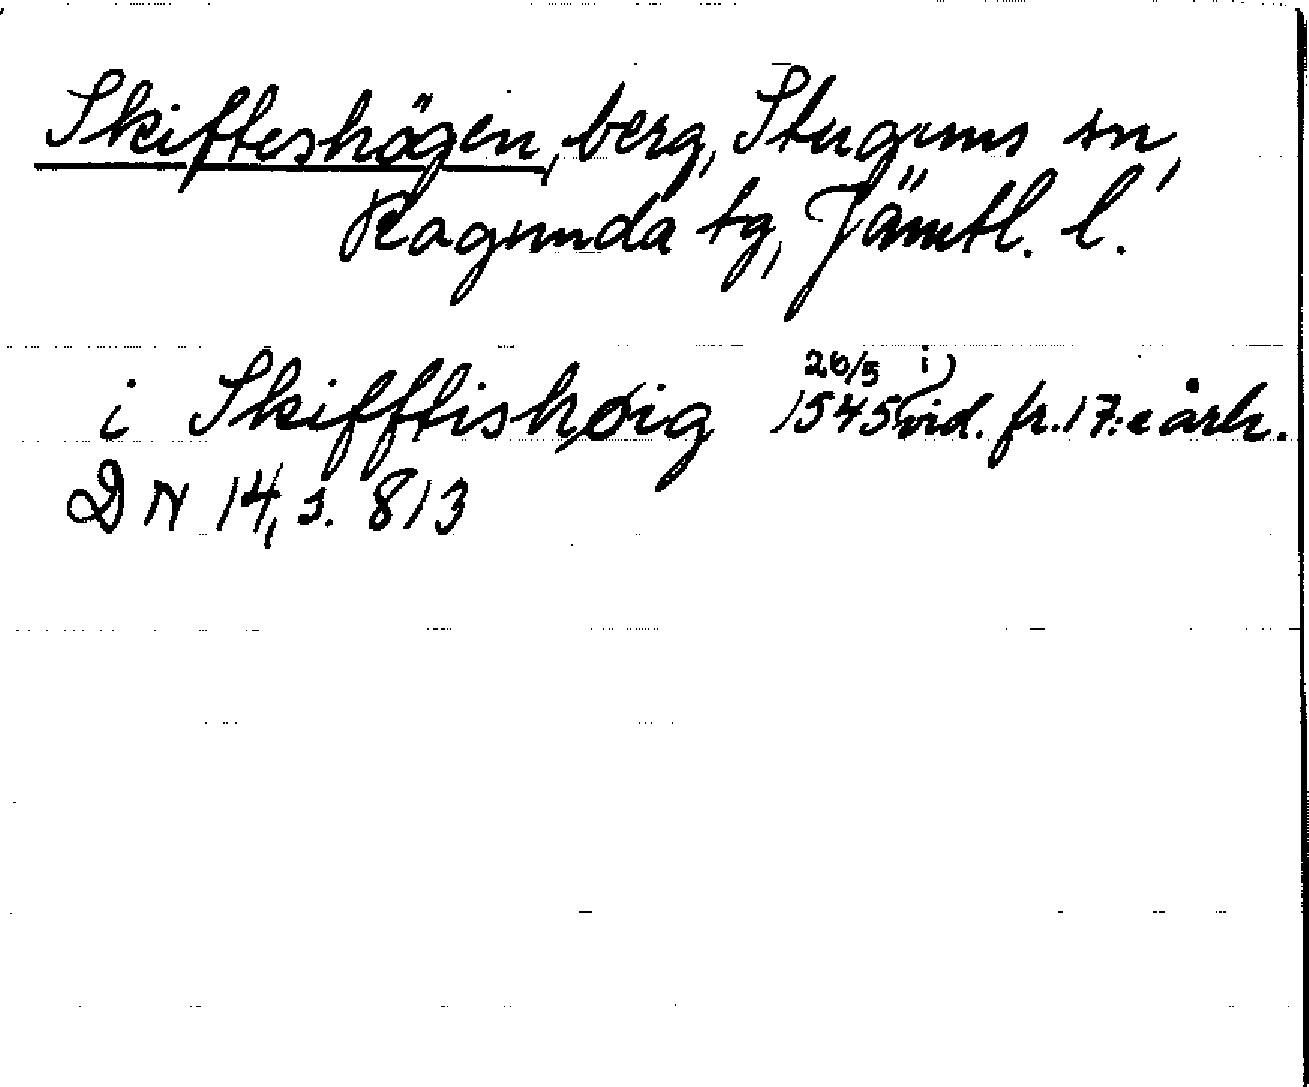 Skifteshögen, berg, Stuguns sn,
Ragunda tg, Jämtl. l.
i Skifftishøig 26/5 1545 i) vid. fr. 17:e årh.
DN 14, s. 813